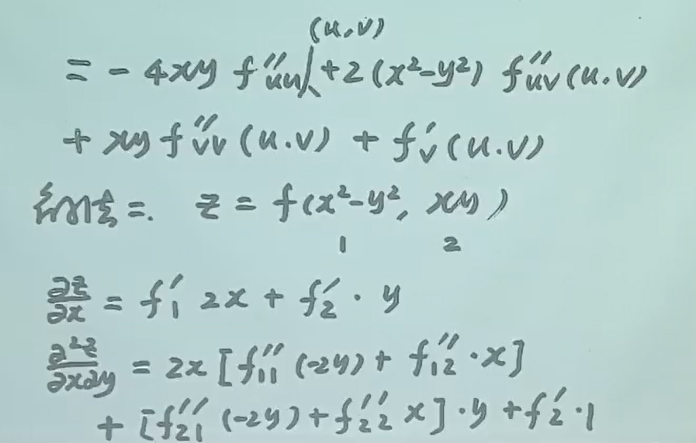 (u.v)
= - 4xy f''uu + 2(x²-y²) f''uv(u.v)
+ xy f''vv(u.v) + f'v(u.v)
解法二. z = f(x²-y², xy)
1 2
∂z/∂x = f'1 2x + f'2 · y
∂²z/∂x∂y = 2x [f''11 (-2y) + f''12 · x]
+ [f''21 (-2y) + f''22 x] · y + f'2 · 1